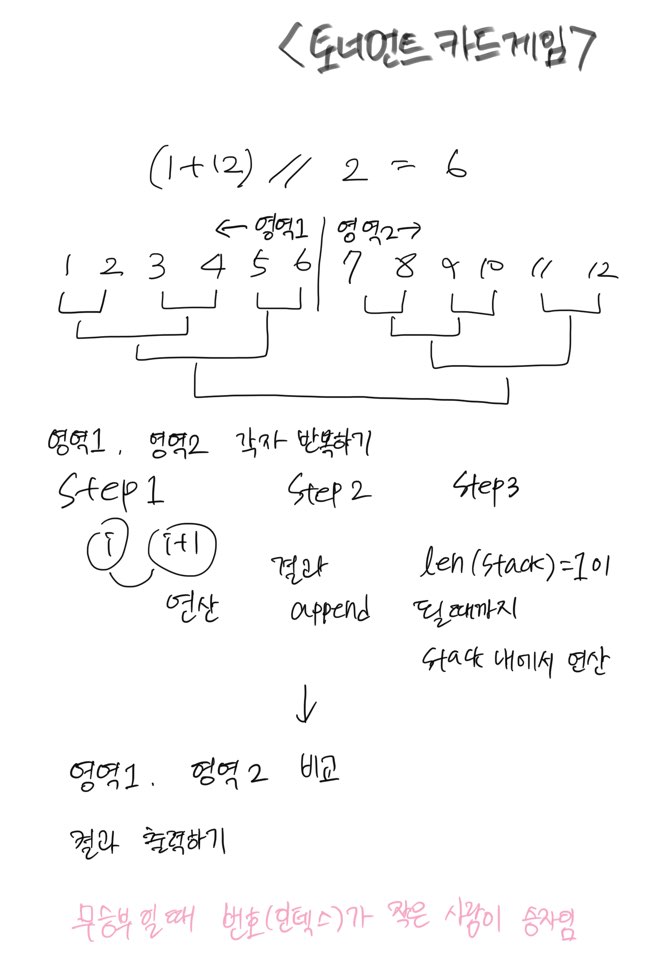 <토너먼트 카드게임>
(1+12) // 2 = 6
←영역1 | 영역2→
1 2 3 4 5 6 7 8 9 10 11 12
영역1, 영역2 각자 반복하기
Step1 Step2 Step3
i i+1 결과 len(stack)=1이
연산 append 될때까지
stack 내에서 연산
↓
영역1. 영역2 비교
결과 출력하기
무승부일때 번호(인덱스)가 작은 사람이 승자임